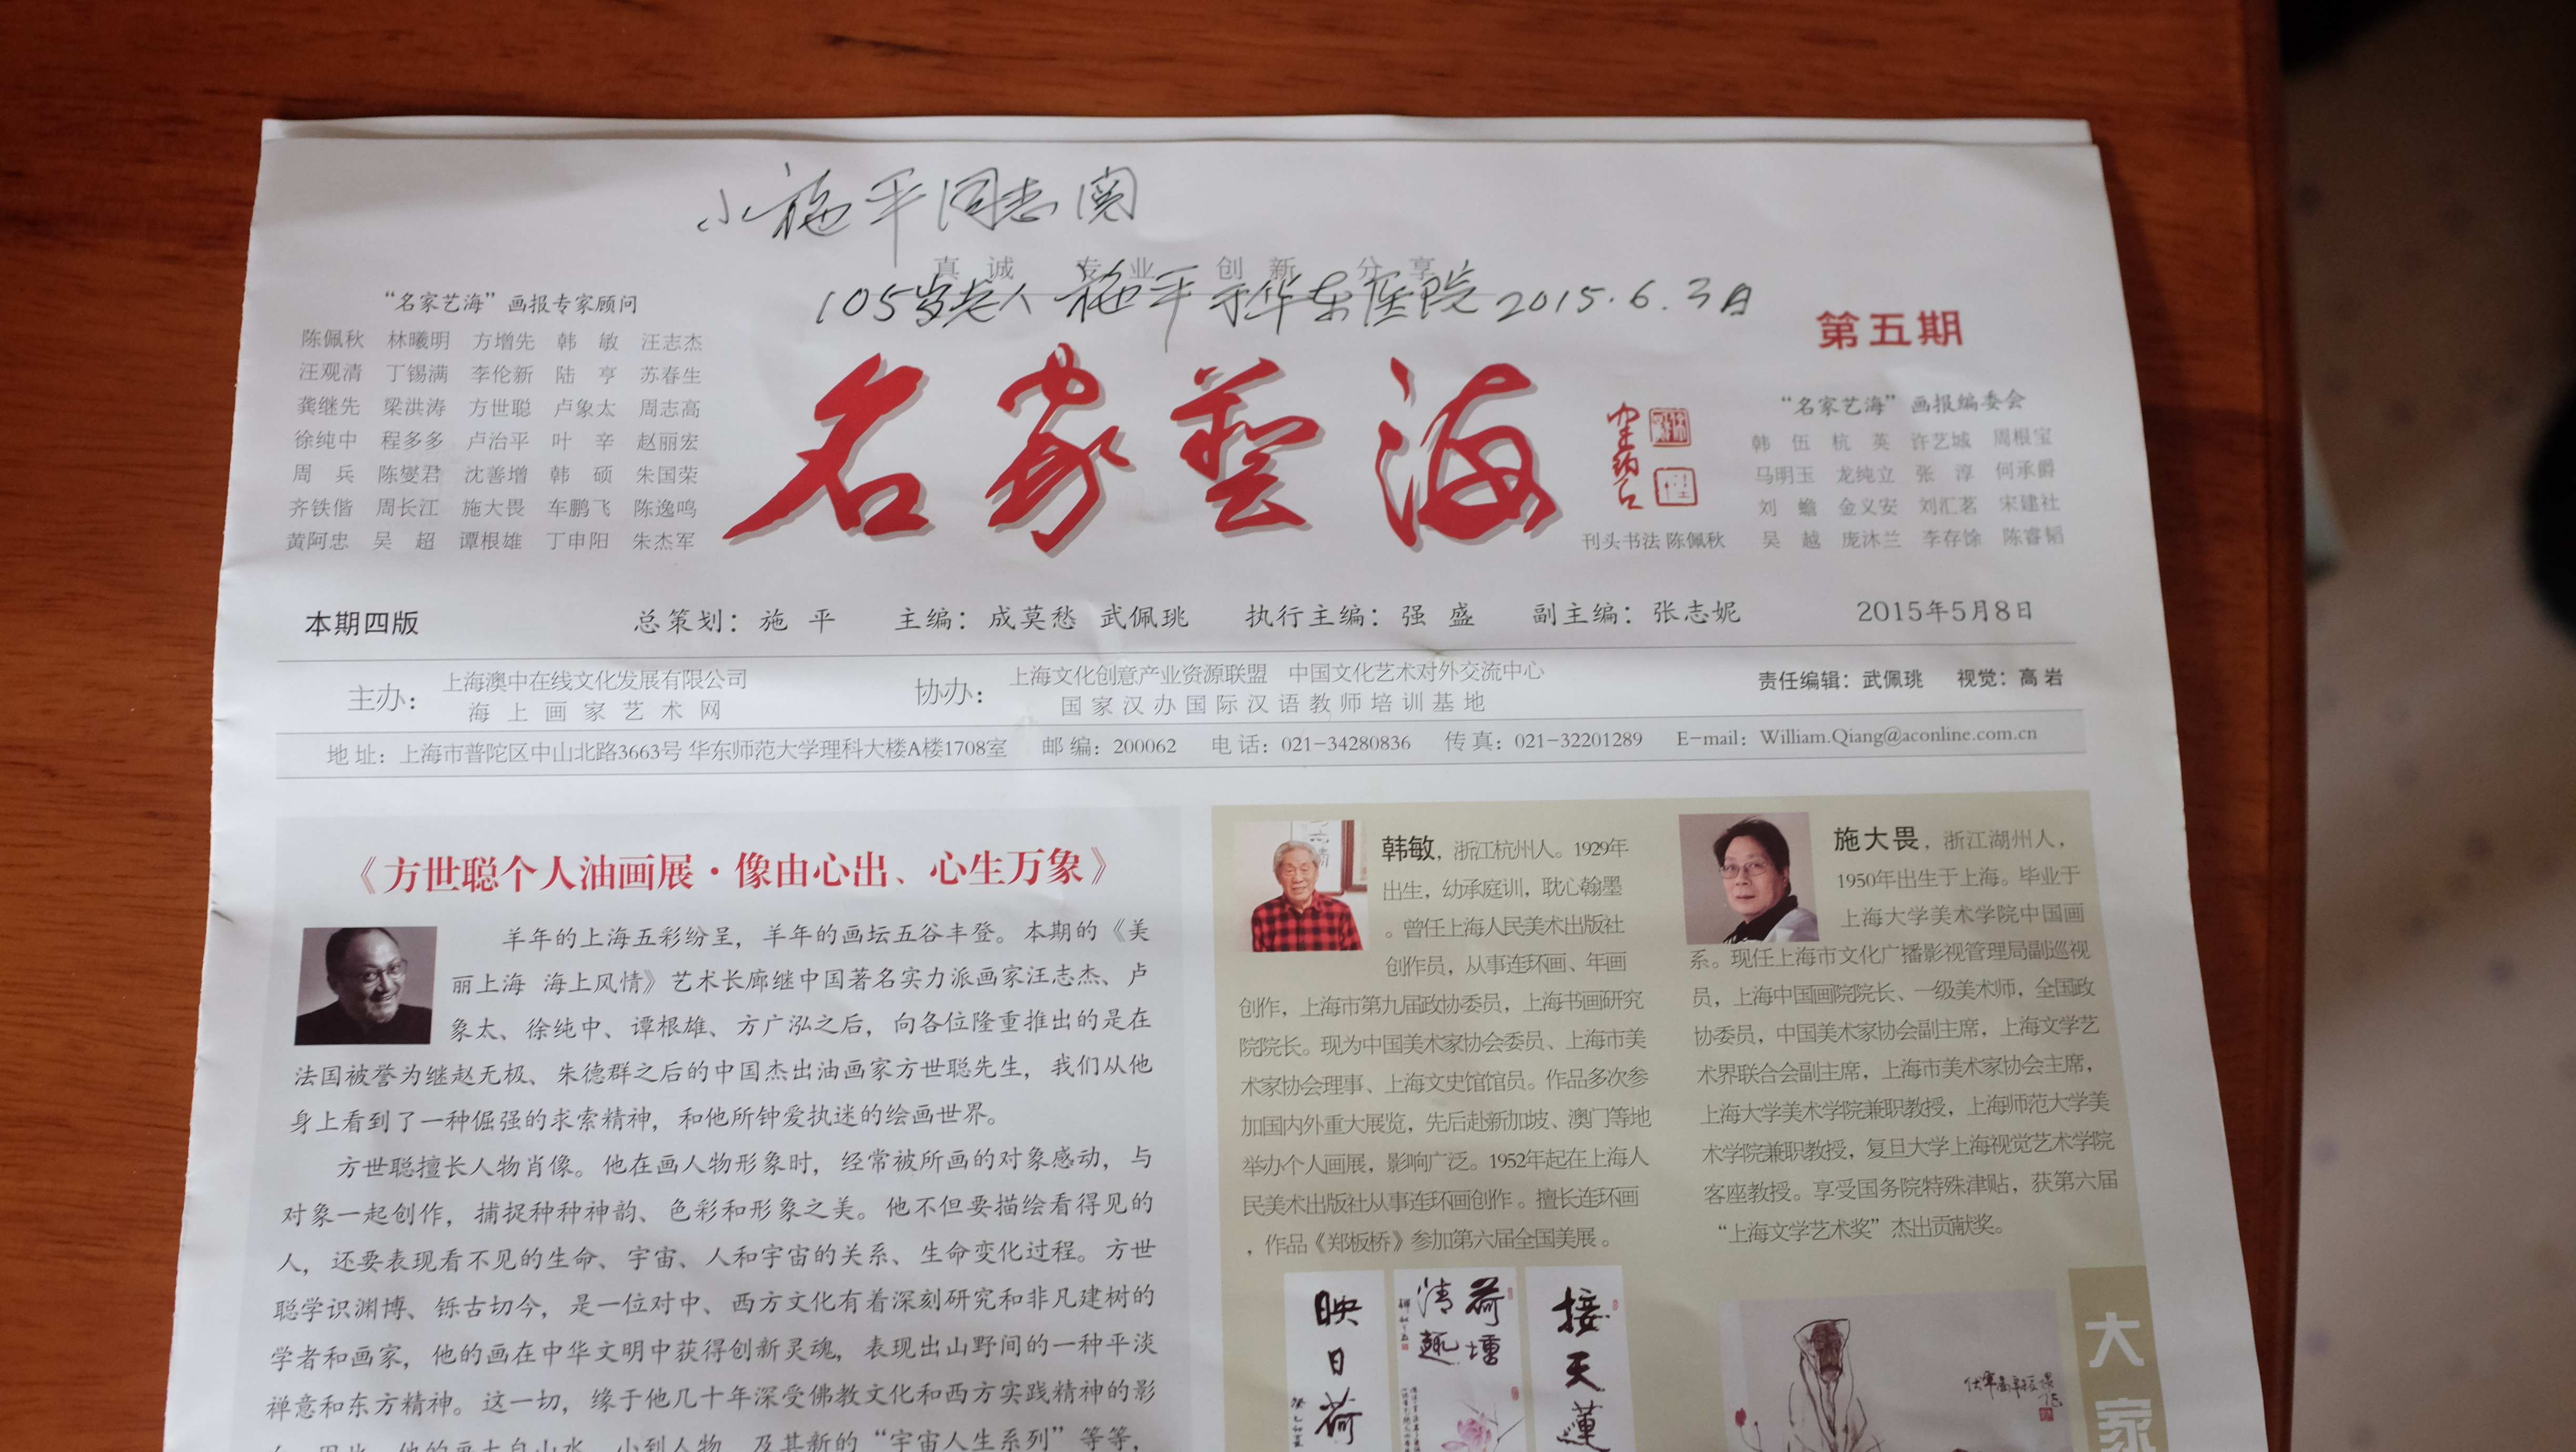 小施平同志阅
真诚 专业 创新 分享
105岁老人 施平于华东医院 2015.6.3日
“名家艺海”画报专家顾问
陈佩秋 林曦明 方增先 韩 敏 汪志杰
汪观清 丁锡满 李伦新 陆 亨 苏春生
龚继先 梁洪涛 方世聪 卢象太 周志高
徐纯中 程多多 卢治平 叶 辛 赵丽宏
周 兵 陈燮君 沈善增 韩 硕 朱国荣
齐铁偕 周长江 施大畏 车鹏飞 陈逸鸣
黄阿忠 吴 超 谭根雄 丁申阳 朱杰军
名家藝海
刊头书法 陈佩秋
第五期
“名家艺海”画报编委会
韩 伍 杭 英 许艺城 周根宝
马明玉 龙纯立 张 淳 何承爵
刘 蟾 金义安 刘汇茗 宋建社
吴 越 庞沐兰 李存馀 陈睿韬
本期四版 总策划：施 平 主编：成莫愁 武佩珧 执行主编：强 盛 副主编：张志妮 2015年5月8日
主办：
上海澳中在线文化发展有限公司
海上画家艺术网
协办：
上海文化创意产业资源联盟 中国文化艺术对外交流中心
国家汉办国际汉语教师培训基地
责任编辑：武佩珧 视觉：高 岩
地 址：上海市普陀区中山北路3663号 华东师范大学理科大楼A楼1708室 邮 编：200062 电 话：021-34280836 传 真：021-32201289 E-mail：William.Qiang@aconline.com.cn
《方世聪个人油画展·像由心出、心生万象》
羊年的上海五彩纷呈，羊年的画坛五谷丰登。本期的《美
丽上海 海上风情》艺术长廊继中国著名实力派画家汪志杰、卢
象太、徐纯中、谭根雄、方广泓之后，向各位隆重推出的是在
法国被誉为继赵无极、朱德群之后的中国杰出油画家方世聪先生，我们从他
身上看到了一种倔强的求索精神，和他所钟爱执迷的绘画世界。
方世聪擅长人物肖像。他在画人物形象时，经常被所画的对象感动，与
对象一起创作，捕捉种种神韵、色彩和形象之美。他不但要描绘看得见的
人，还要表现看不见的生命、宇宙、人和宇宙的关系、生命变化过程。方世
聪学识渊博、铄古切今，是一位对中、西方文化有着深刻研究和非凡建树的
学者和画家，他的画在中华文明中获得创新灵魂，表现出山野间的一种平淡
禅意和东方精神。这一切，缘于他几十年深受佛教文化和西方实践精神的影
他的画大自山水，小到人物，及其新的“宇宙人生系列”等等，
韩敏，浙江杭州人。1929年
出生，幼承庭训，耽心翰墨
。曾任上海人民美术出版社
创作员，从事连环画、年画
创作，上海市第九届政协委员，上海书画研究
院院长。现为中国美术家协会委员、上海市美
术家协会理事、上海文史馆馆员。作品多次参
加国内外重大展览，先后赴新加坡、澳门等地
举办个人画展，影响广泛。1952年起在上海人
民美术出版社从事连环画创作。擅长连环画
，作品《郑板桥》参加第六届全国美展。
施大畏，浙江湖州人，
1950年出生于上海。毕业于
上海大学美术学院中国画
系。现任上海市文化广播影视管理局副巡视
员，上海中国画院院长、一级美术师，全国政
协委员，中国美术家协会副主席，上海文学艺
术界联合会副主席，上海市美术家协会主席，
上海大学美术学院兼职教授，上海师范大学美
术学院兼职教授，复旦大学上海视觉艺术学院
客座教授。享受国务院特殊津贴，获第六届
“上海文学艺术奖”杰出贡献奖。
映日荷
荷塘
清趣
接天蓮
大家